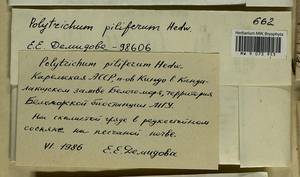 Polytrichum piliferum Hedw.
662
Е.Е. Демидова - 98606
Herbarium MW, Bryophyta
Polytrichum piliferum Hedw.
Карельская АССР п-ов Киндо в Канда-
лакшском заливе Белого моря, территория
Беломорской биостанции МГУ.
На скалистой гряде в редкостойном
сосняке на песчаной почве.
VI. 1986 Е.Е. Демидова